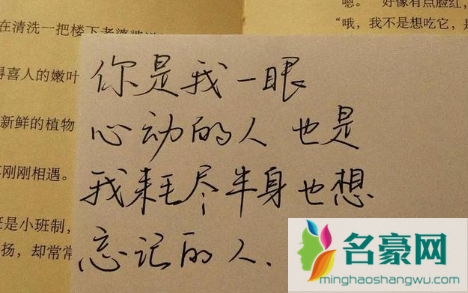 在清洗一把楼下老婆婆
得喜人的嫩叶
新鲜的植物
刚刚相遇。
是小班制，
扬，却常常
嗯。 好像有点脸红，
“哦，我不是想吃它，是
你是我一眼
心动的人 也是
我耗尽半身也想
忘记的人.
名豪网
minghaoshangwu.com